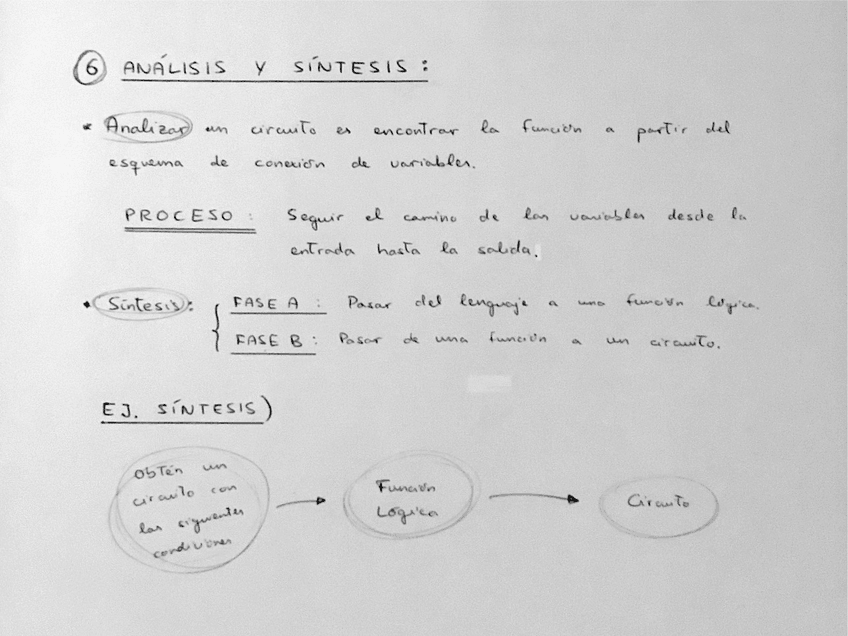 6 ANÁLISIS Y SÍNTESIS:
* Analizar un circuito es encontrar la función a partir del
esquema de conexión de variables.
PROCESO: Seguir el camino de las variables desde la
entrada hasta la salida.
• Síntesis: { FASE A: Pasar del lenguaje a una función lógica.
FASE B: Pasar de una función a un circuito.
EJ. SÍNTESIS)
Obtén un
circuito con
las siguientes
condiciones
Función
Lógica
Circuito